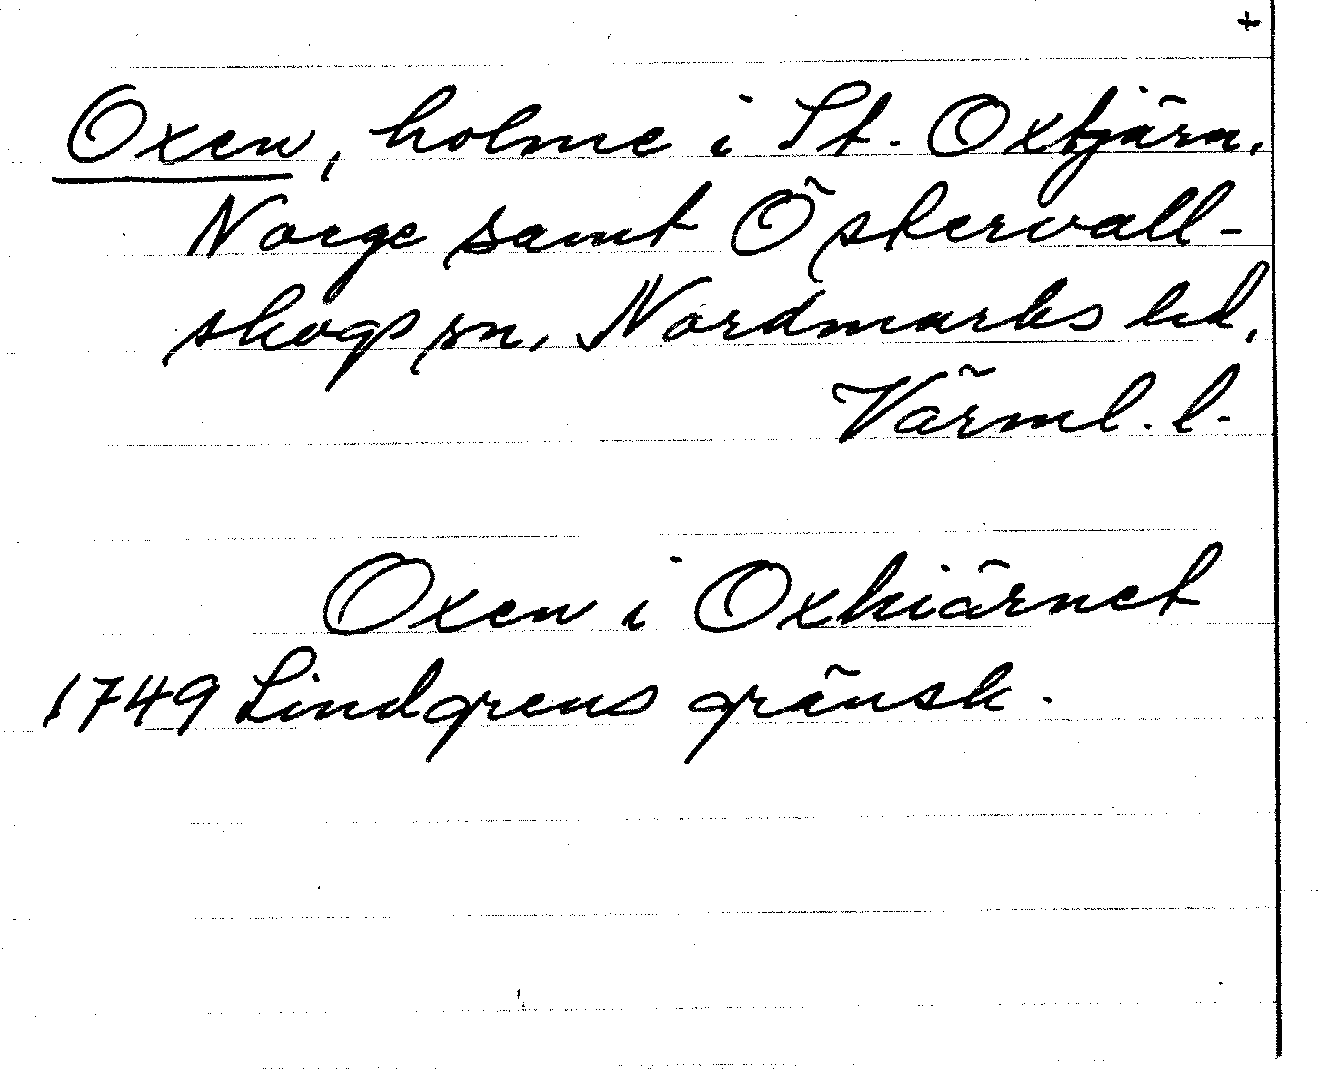 +
Oxen, holme i St. Oxtjärn,
Norge samt Östervall-
skogs sn, Nordmarks hd,
Värml. l.
Oxen i Oxkiärnet
1749 Lindgrens gränsk.